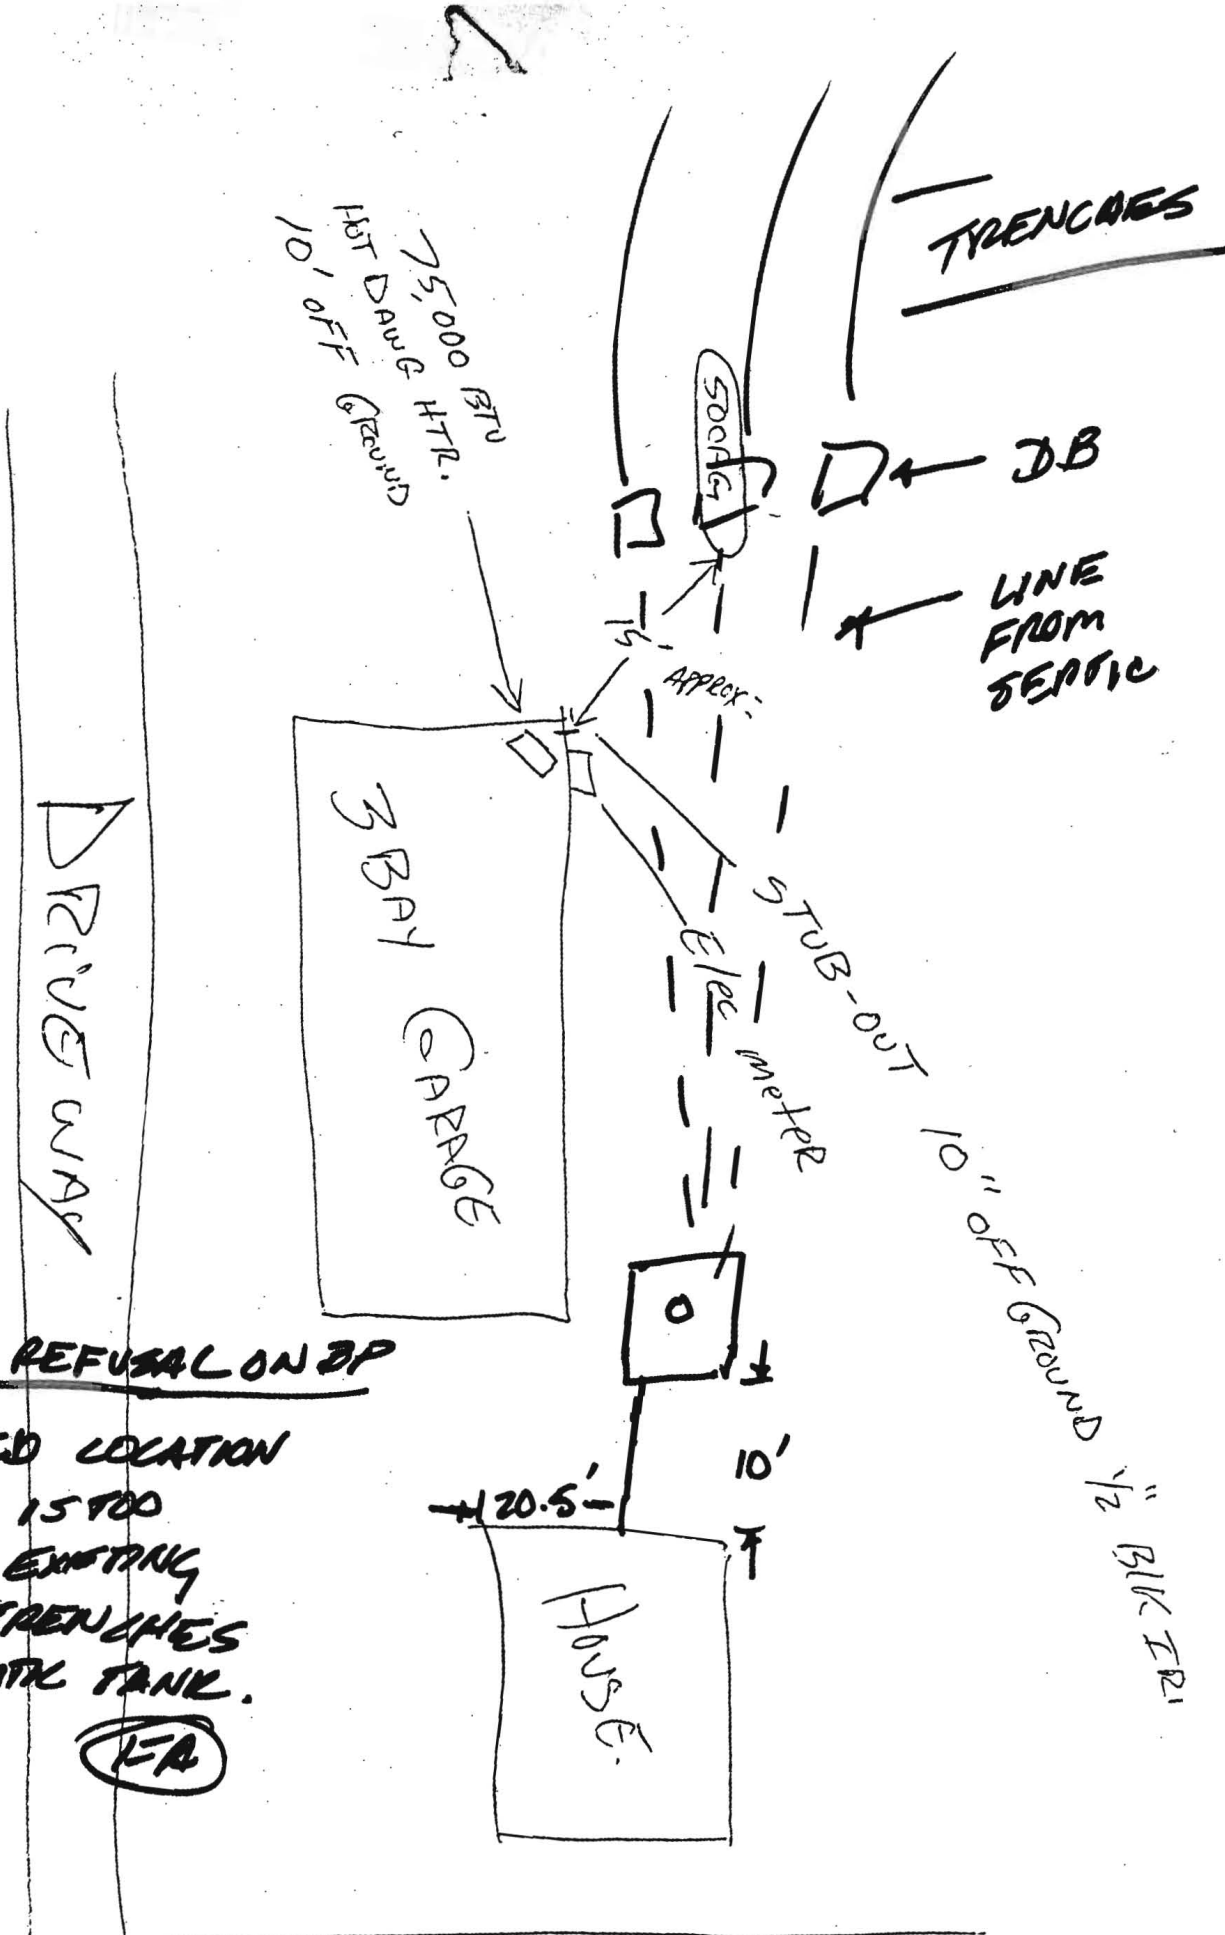 TRENCHES
75,000 BTU
HOT DAWG HTR.
10' OFF GROUND
500AG
DB
LINE
FROM
SEPTIC
15'
APPROX.
3 BAY GARAGE
DRIVEWAY
STUB-OUT 10" OFF GROUND 1/2" BLK
Elec meteR
REFUSAL ON
LOCATION
IS TOO
EXISTING
TRENCHES
TANK.
10'
20.5'
HOUSE.